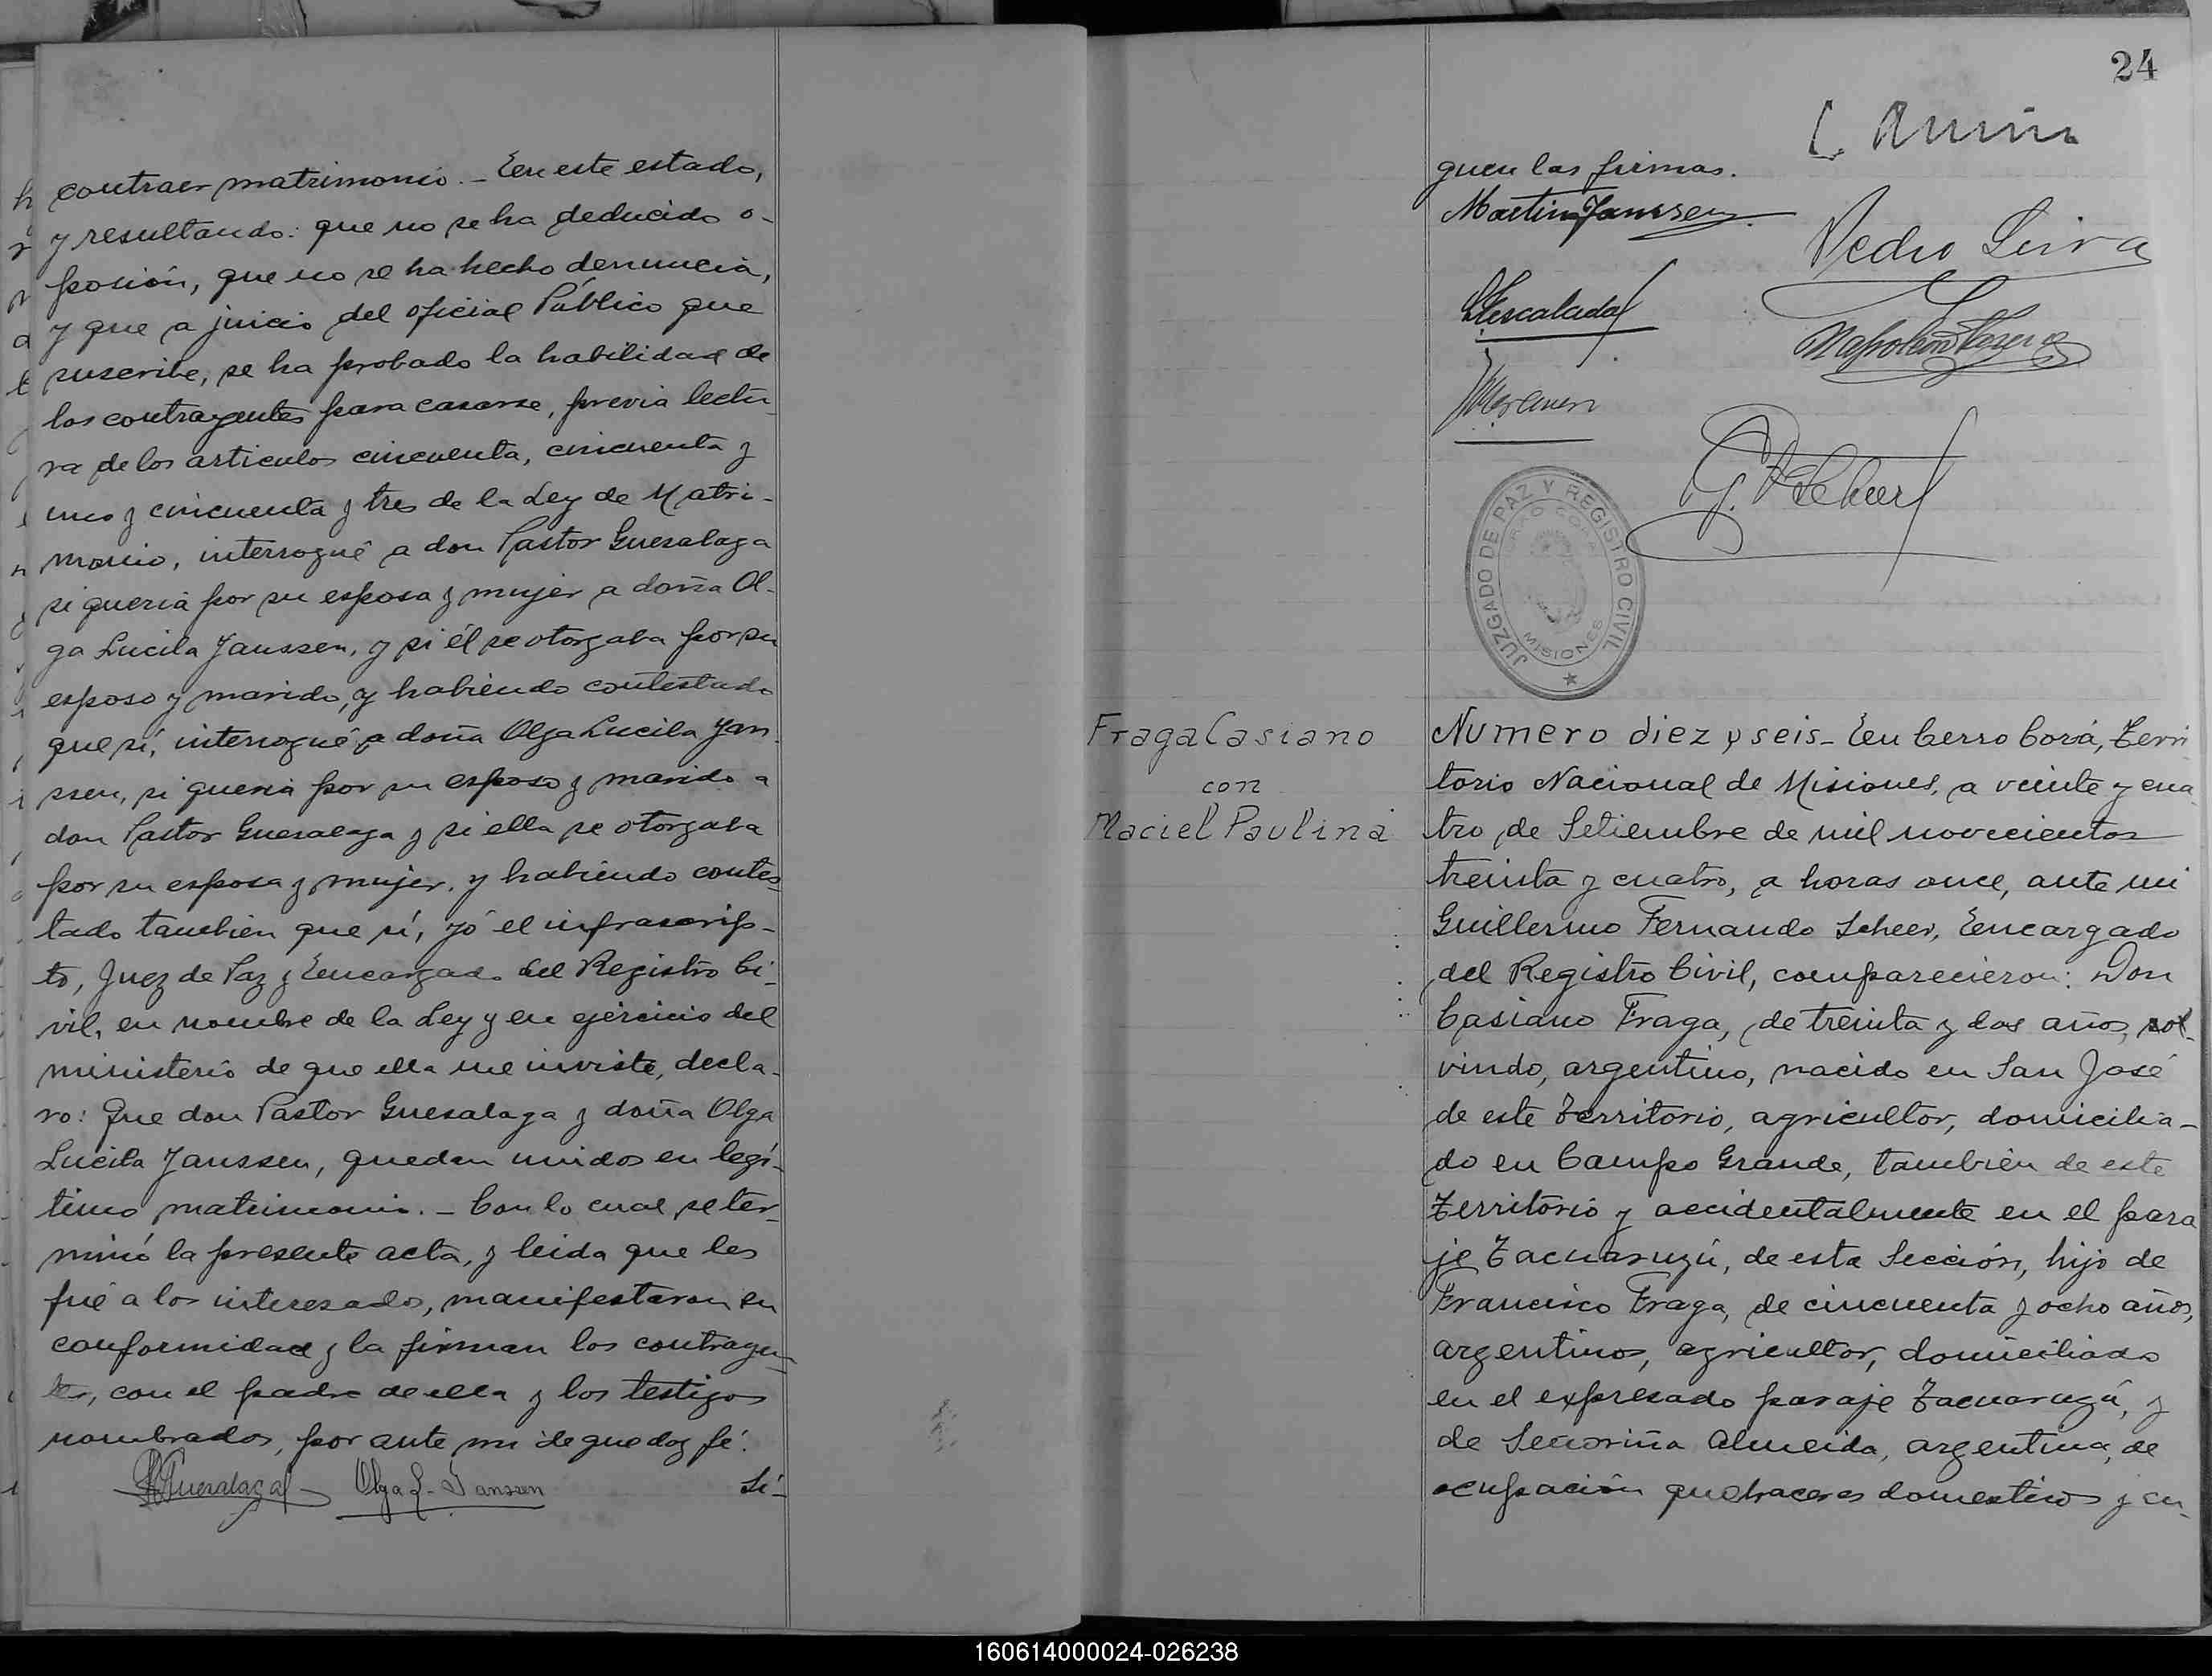 contraer matrimonio.- En este estado,
y resultando: que no se ha deducido o-
posición, que no se ha hecho denuncia,
y que a juicio del oficial Público que
suscribe, se ha probado la habilidad de
los contrayentes para casarse, previa lectu-
ra de los articulos cincuenta, cincuenta y
uno y cincuenta y tres de la Ley de Matri-
monio, interrogué a don Pastor Guesalaga
si queria por su esposa y mujer a doña Ol-
ga Lucila Janssen, y si él se otorgaba por su
esposo y marido, y habiendo contestado
que sí, interrogué a doña Olga Lucila Jan-
ssen, si queria por su esposo y marido a
don Pastor Guesalaga y si ella se otorgaba
por su esposa y mujer, y habiendo contes-
tado tambien que sí, yó el infrascrip-
to, Juez de Paz y Encargado del Registro Ci-
vil, en nombre de la Ley y en ejercicio del
ministerio de que ella me inviste, decla-
ro: Que don Pastor Guesalaga y doña Olga
Lucila Janssen, quedan unidos en legí-
timo matrimonio.- Con lo cual se ter-
minó la presente acta, y leida que les
fué a los interesados, manifestaron su
conformidad y la firman los contrayen-
tes, con el padre de ella y los testigos
nombrados, por ante mi de que doy fé.
PGuesalaga Olga L. Janssen Si-
24
guen las firmas.
Martin Janssen
Pedro Leiva
Escalada
Napoleon
G. F. Scheer
JUZGADO DE PAZ Y REGISTRO CIVIL
CERRO CORÁ
MISIONES
Fraga Casiano
con
Maciel Paulina
Numero diez y seis- En Cerro Corá, Terri
torio Nacional de Misiones, a veinte y cua
tro de Setiembre de mil novecientos
treinta y cuatro, a horas once, ante mi
Guillermo Fernando Scheer, Encargado
del Registro Civil, comparecieron: Don
Casiano Fraga, de treinta y dos años,
viudo, argentino, nacido en San José
de este Territorio, agricultor, domicilia-
do en Campo Grande, tambien de este
Territorio y accidentalmente en el para
je Tacuaruzú, de esta Sección, hijo de
Francisco Fraga, de cincuenta y ocho años,
argentino, agricultor, domiciliado
en el expresado paraje Tacuaruzú, y
de Señoriña Almeida, argentina, de
ocupación quehaceres domesticos y en
160614000024-026238